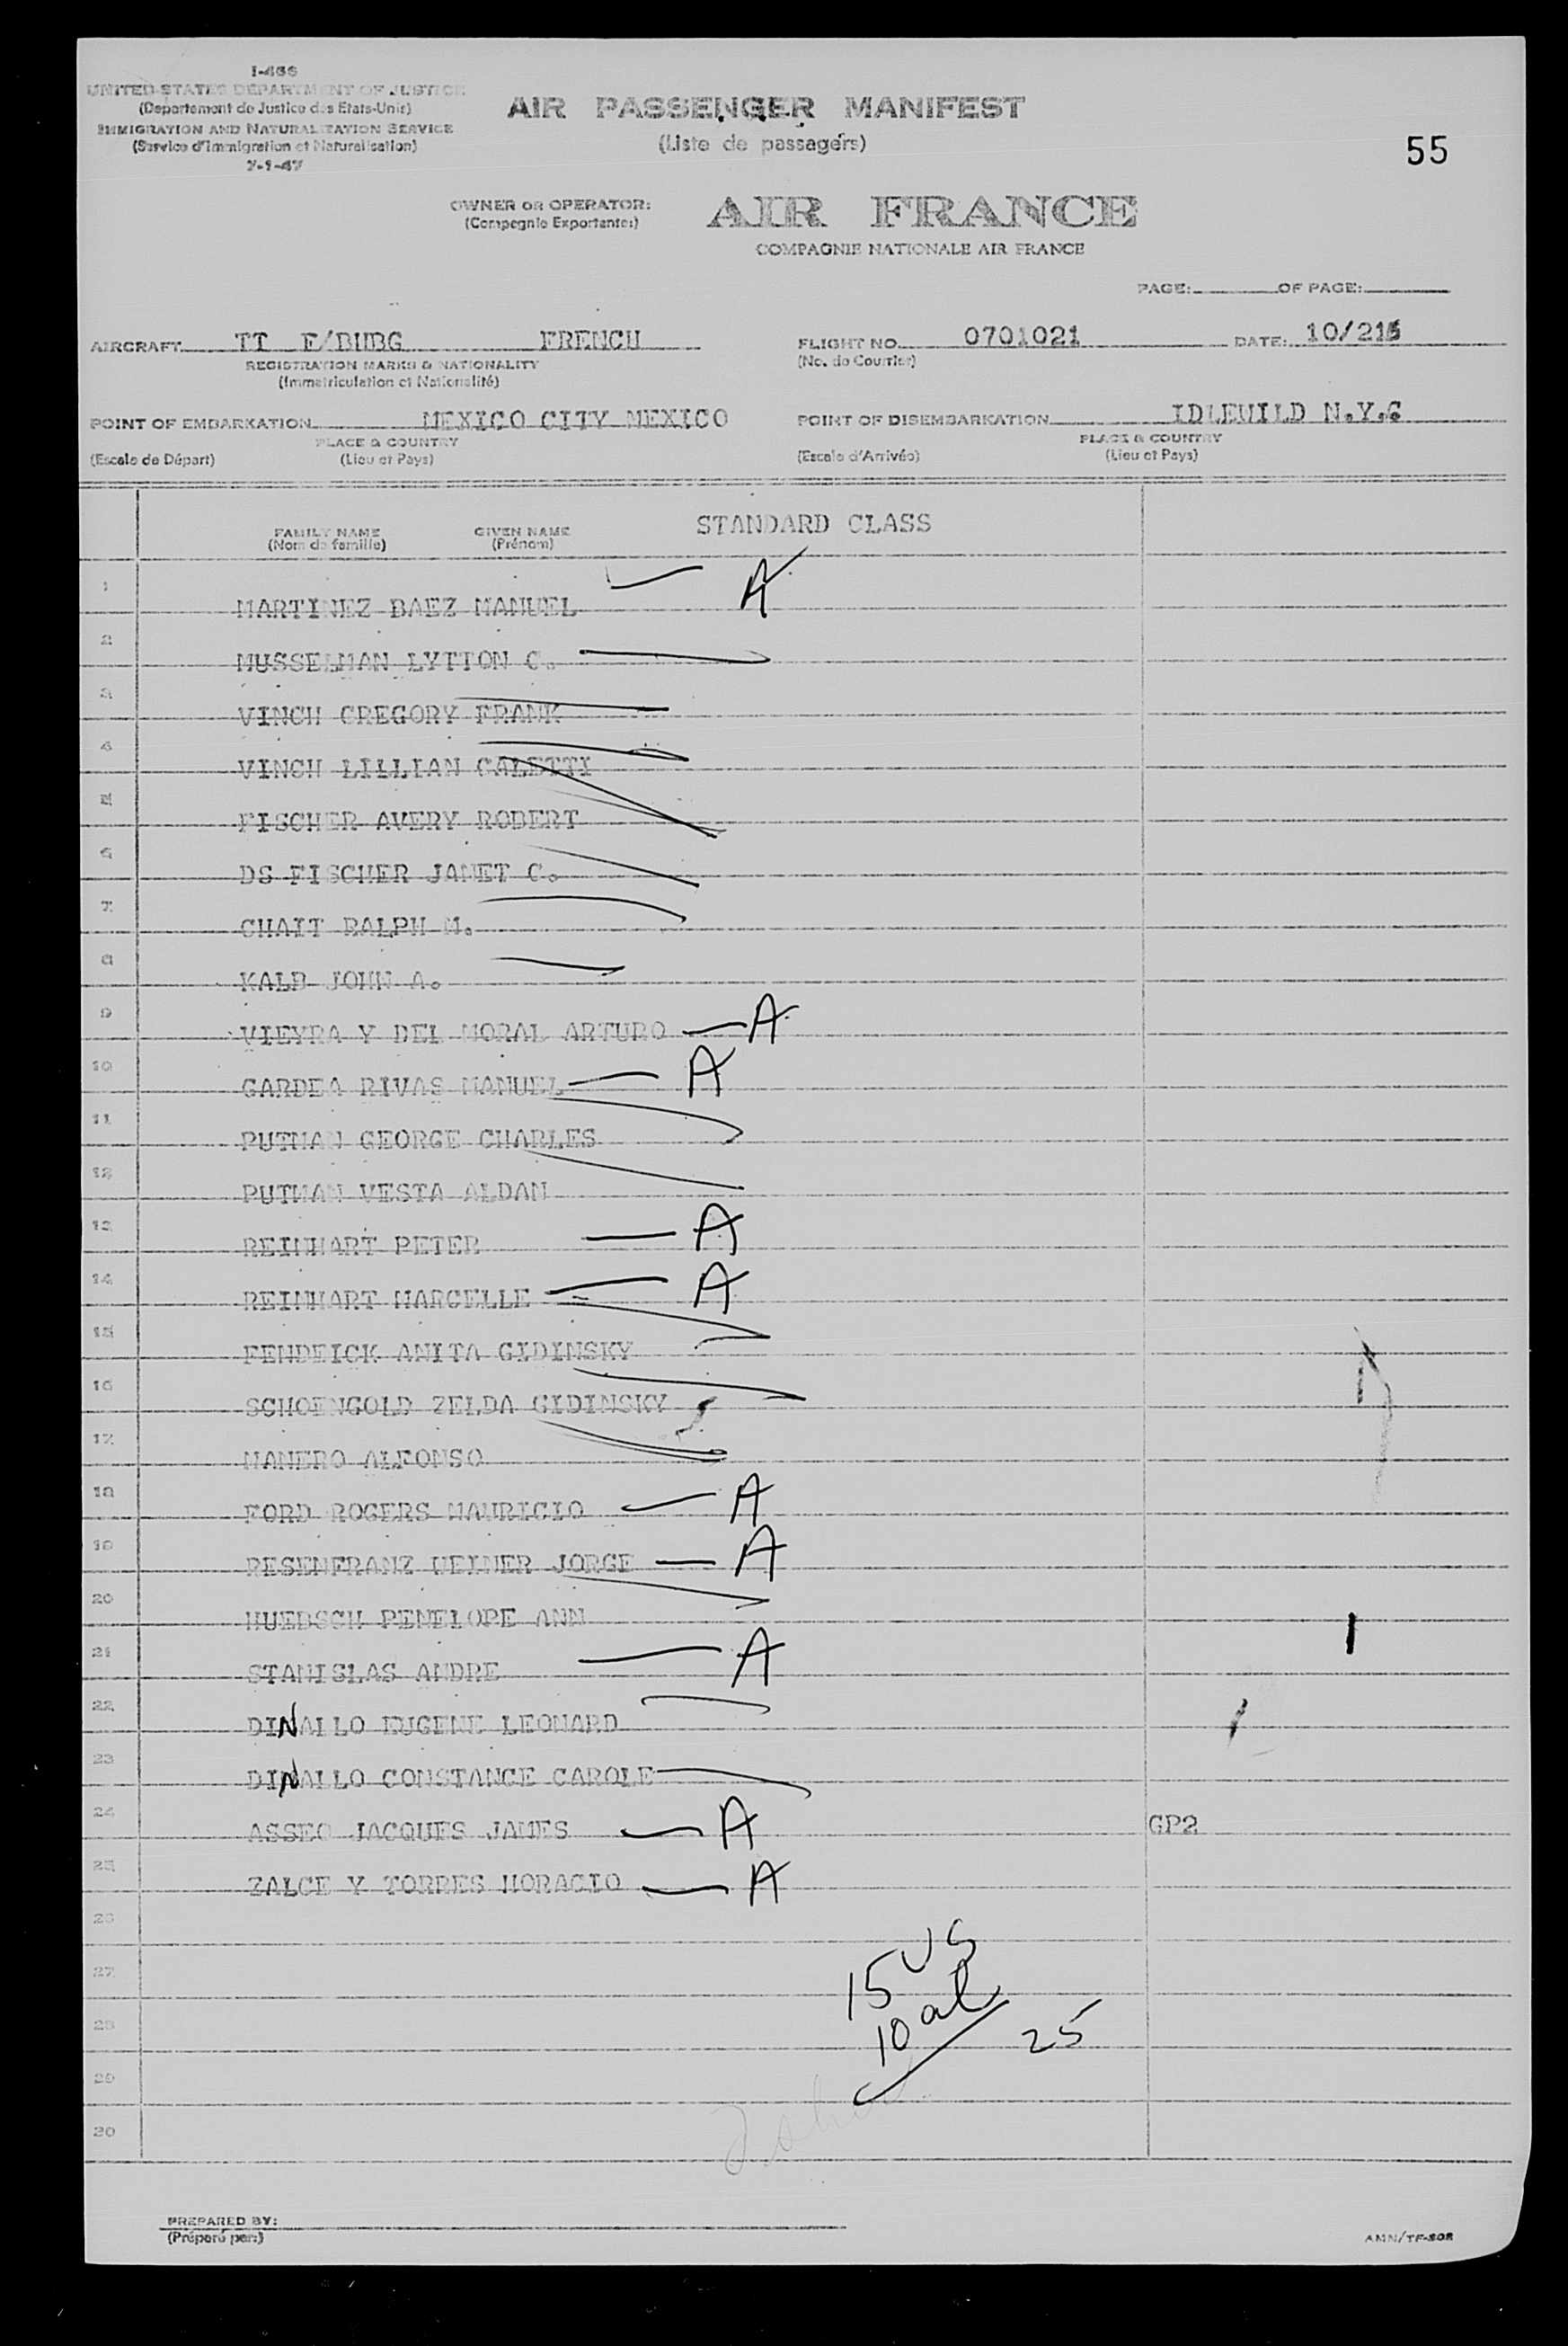 I-466
UNITED STATES DEPARTMENT OF JUSTICE
(Departement de Justice des Etats-Unis)
IMMIGRATION AND NATURALIZATION SERVICE
(Service d'Immigration et Naturalisation)
7-1-47
AIR PASSENGER MANIFEST
(Liste de passagers)
55
OWNER OR OPERATOR:
(Compagnie Exportante:)
AIR FRANCE
COMPAGNIE NATIONALE AIR FRANCE
PAGE: OF PAGE:
AIRCRAFT FRENCH
REGISTRATION MARKS & NATIONALITY
(Immatriculation et Nationalité)
FLIGHT NO. 0701021 DATE: 10/21
(No. de Courrier)
POINT OF EMBARKATION MEXICO CITY MEXICO
PLACE & COUNTRY
(Escale de Départ) (Lieu et Pays)
POINT OF DISEMBARKATION IDLEWILD N.Y.C
PLACE & COUNTRY
(Escale d'Arrivée) (Lieu et Pays)
FAMILY NAME GIVEN NAME STANDARD CLASS
(Nom de famille) (Prénom)
1 MARTINEZ BAEZ MANUEL A
2 MUSSELMAN LYTTON C.
3 VINCH GREGORY FRANK
4 VINCH LILLIAN CALETTI
5 FISCHER AVERY ROBERT
6 DS FISCHER JANET C.
7 CHAIT RALPH M.
8 KALB JOHN A.
9 VIEYRA Y DEL MORAL ARTURO A
10 GARDEA RIVAS MANUEL A
11 PUTMAN GEORGE CHARLES
12 PUTMAN VESTA ALDAN
13 REINHART PETER A
14 REINHART MARCELLE A
15 FENDEICK ANITA GIDINSKY
16 SCHOENGOLD ZELDA GIDINSKY
17 MANERO ALFONSO
18 FORD ROGERS MAURICIO A
19 RESENFRANZ WEINER JORGE A
20 HUEBSCH PENELOPE ANN
21 STANISLAS ANDRE A
22 DINALLO EUGENE LEONARD
23 DINALLO CONSTANCE CAROLE
24 ASSEO JACQUES JAMES A GP2
25 ZALCE Y TORRES HORACIO A
26
27
28
29
30
15 US
10 al
25
PREPARED BY:
(Préparé par:)
AMN/TF-SOR